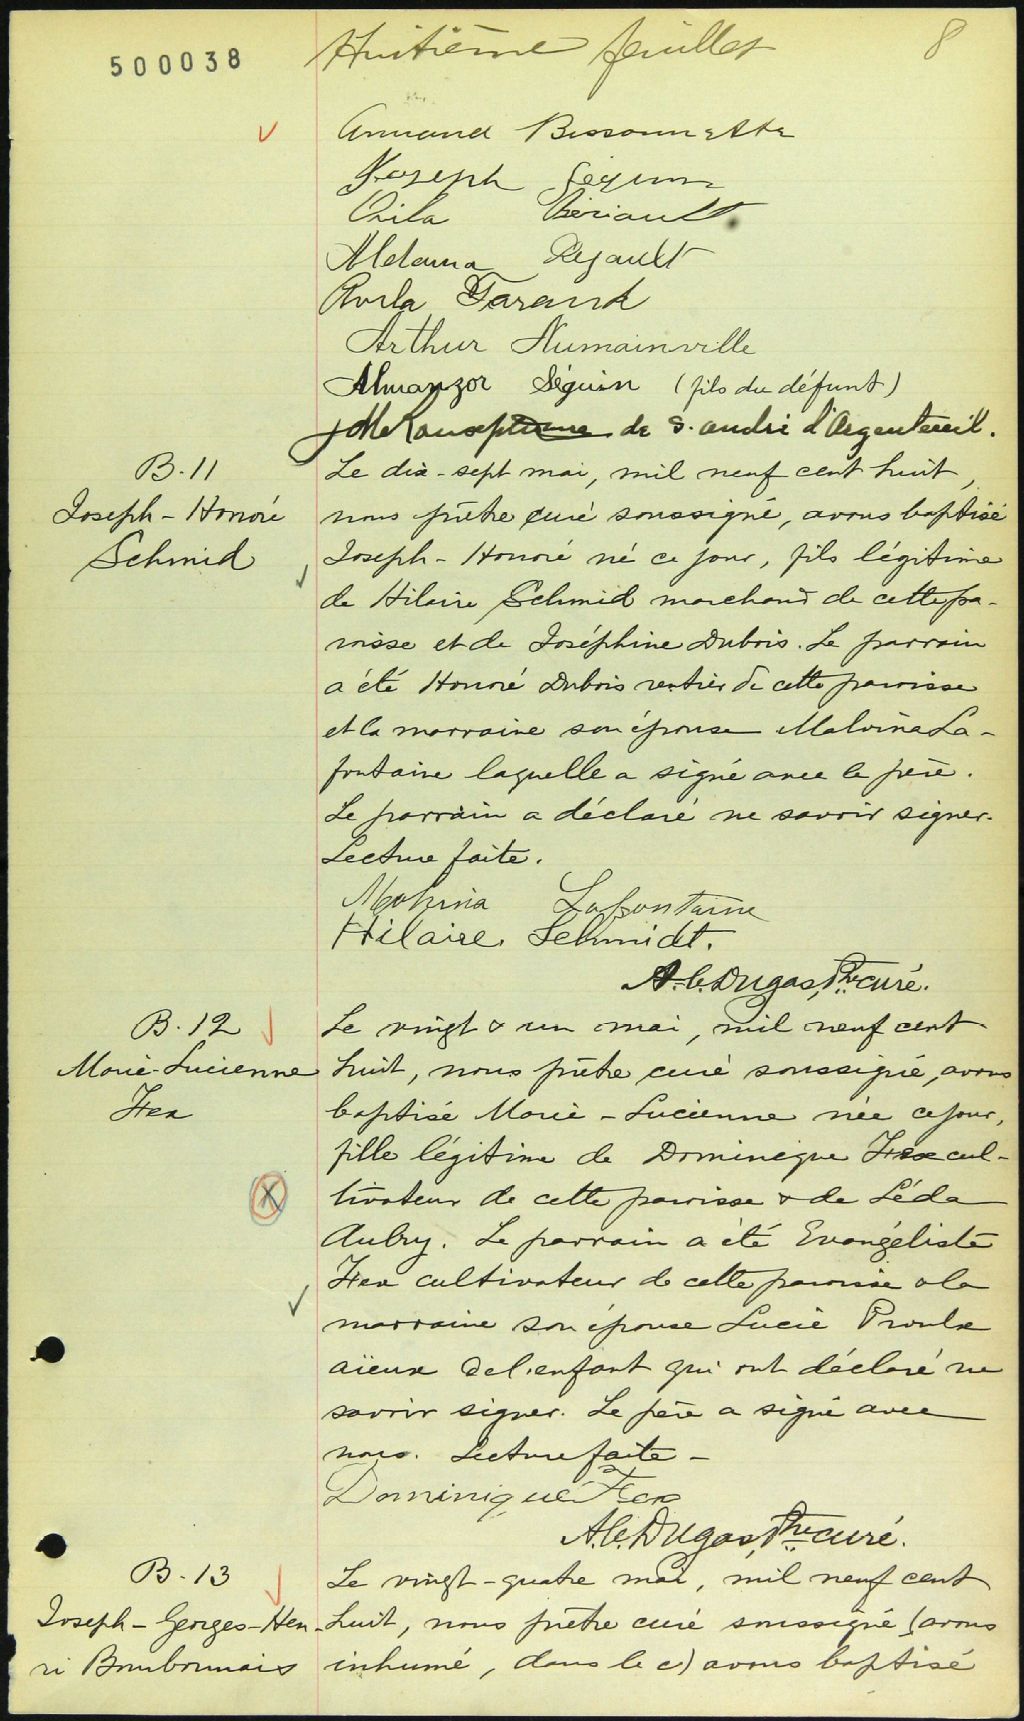 500038
Huitième feuillet
8
Armand Bissonnette
Joseph Séguin
Ovila Thériault
Aldama Légault
Avila Farand
Arthur Numainville
Almanzor Séguin (fils du défunt)
de S. andré d'Argenteuil.
B. 11
Joseph-Honoré
Schmid
Le dix-sept mai, mil neuf cent huit,
nous prêtre curé soussigné, avons baptisé
Joseph-Honoré né ce jour, fils légitime
de Hilaire Schmid marchand de cette pa-
roisse et de Joséphine Dubois. Le parrain
a été Honoré Dubois rentier de cette paroisse
et la marraine son épouse Malvina La-
fontaine laquelle a signé avec le père.
Le parrain a déclaré ne savoir signer.
Lecture faite.
Malvina Lafontaine
Hilaire Schmidt.
A. C. Dugas, Ptre curé.
B. 12
Marie-Lucienne
Fex
Le vingt & un mai, mil neuf cent
huit, nous prêtre curé soussigné, avons
baptisé Marie-Lucienne née ce jour,
fille légitime de Dominique Fex cul-
tivateur de cette paroisse & de Léda
Aubry. Le parrain a été Evangéliste
Fex cultivateur de cette paroisse & la
marraine son épouse Lucie Proulx
aïeux de l'enfant qui ont déclaré ne
savoir signer. Le père a signé avec
nous. Lecture faite -
Dominique Fex
A. C. Dugas, Ptre curé.
B. 13
Joseph-Georges-Hen-
ri Bourbonnais
Le vingt-quatre mai, mil neuf cent
huit, nous prêtre curé soussigné (avons
inhumé, dans le c) avons baptisé